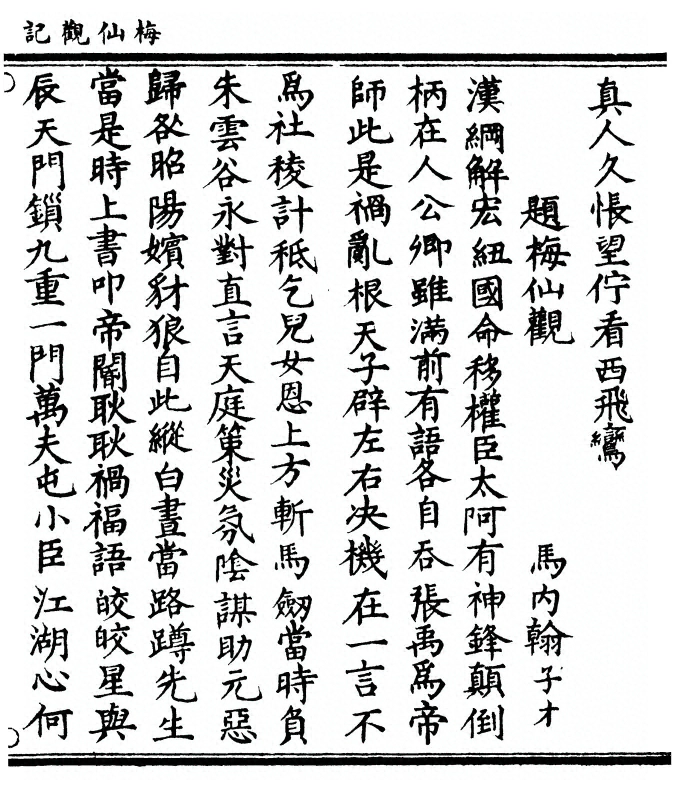 梅仙觀記
真人久悵望佇看西飛鸞
題梅仙觀
馬內翰子才
漢綱解宏紐國命移權臣太阿有神鋒顛倒
柄在人公卿雖滿前有語各自吞張禹爲帝
師此是禍亂根天子辟左右决機在一言不
爲社稜計秪乞兒女恩上方斬馬劒當時負
朱雲谷永對直言天庭策災氛陰謀助元惡
歸咎昭陽嬪豺狼自此縱白晝當路蹲先生
當是時上書叩帝閽耿耿禍福語皎皎星與
辰天門鎖九重一門萬夫屯小臣江湖心何